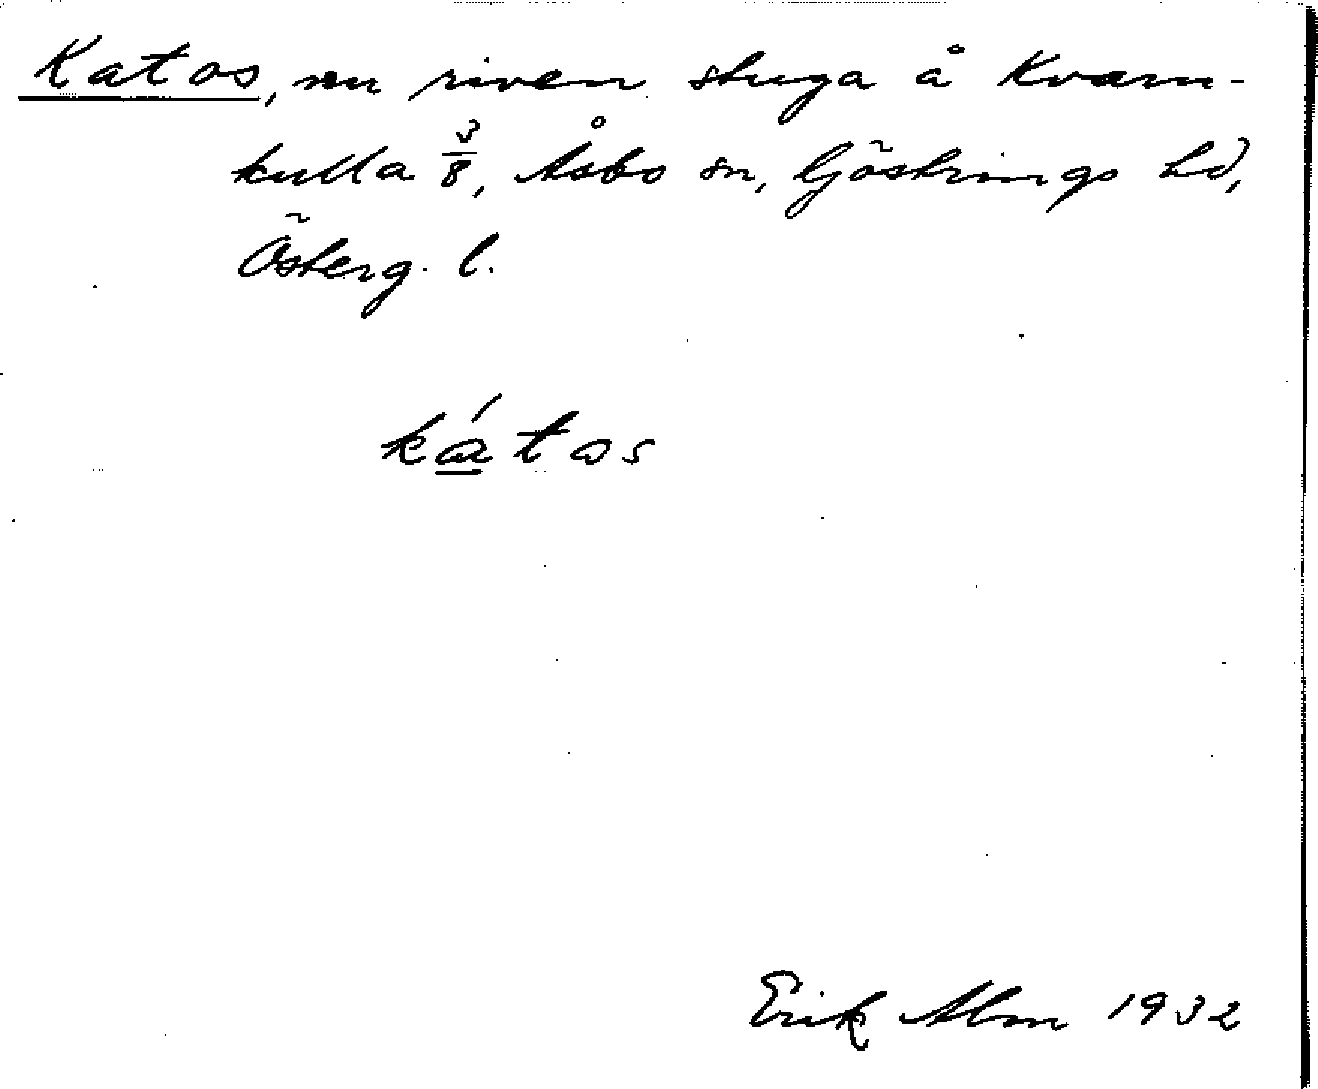 Katos, nu riven stuga å Kvarn-
kulla 3/8, Åsbo sn, Göstrings hd,
Österg. l.
kátos
Erik Alm 1932